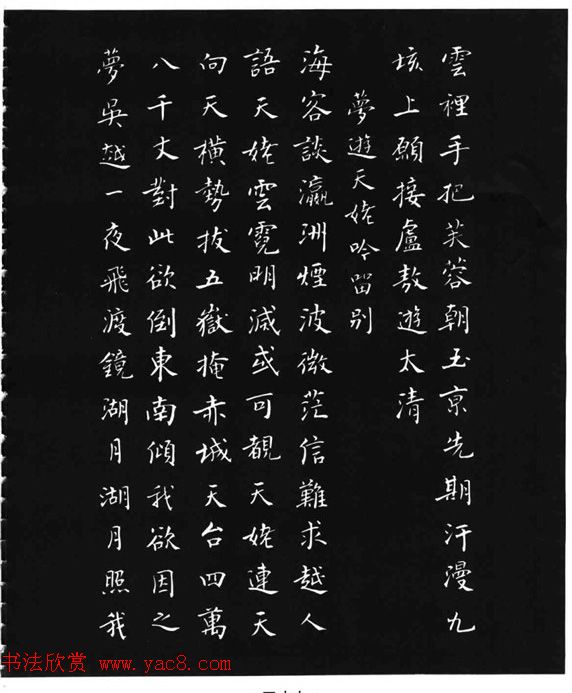 雲裡手把芙蓉朝玉京先期汗漫九
垓上願接盧敖遊太清
夢遊天姥吟留別
海客談瀛洲煙波微茫信難求越人
語天姥雲霓明滅或可覩天姥連天
向天橫勢拔五嶽掩赤城天台四萬
八千丈對此欲倒東南傾我欲因之
夢吳越一夜飛渡鏡湖月湖月照我
书法欣赏 www.yac8.com